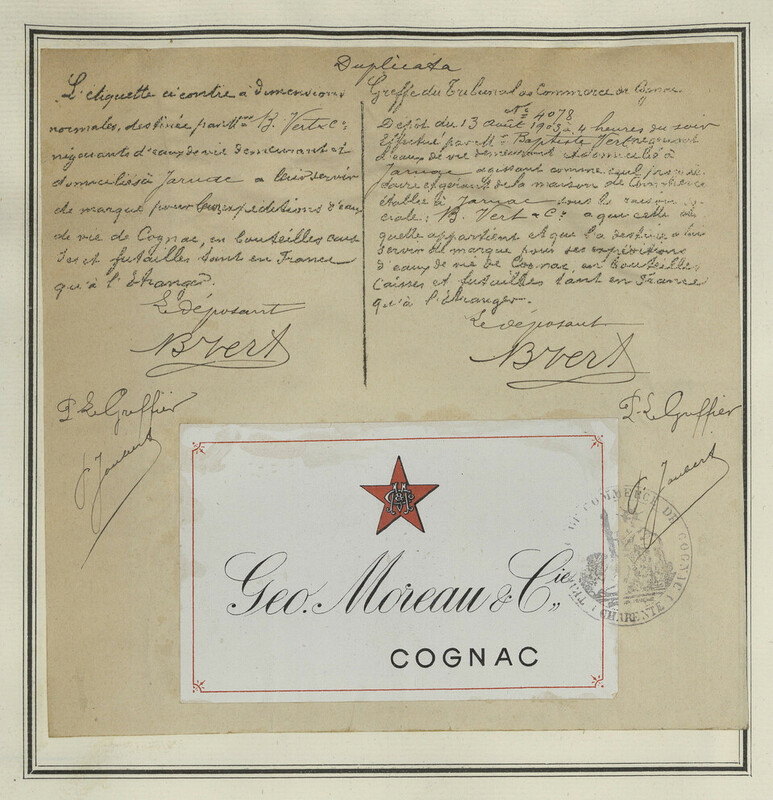 Duplicata
L'étiquette ci contre à dimensions
normales, destinée par Mrs B. Vert & Cie
négociants d'eaux de vie demeurant et
domiciliés à Jarnac a leur servir
de marque pour leurs expéditions d'eaux
de vie de Cognac, en bouteilles cais
ses et futailles tant en France
qu'à l'étranger.
Le déposant
B Vert
P. Le Greffier
J. Joubert
Greffe du Tribunal de Commerce de Cognac
No 4078
Dépôt du 13 Août 1903 à 4 heures du soir
Effectué par Mr Baptiste Vert négociant
d'eaux de vie demeurant et domicilié à
Jarnac agissant comme seul proprié
taire et gérant de la maison de Commerce
établie à Jarnac sous la raison so
ciale: B. Vert & Cie a qui cette éti
quette appartient et qui l'a destinée à lui
servir de marque pour ses expéditions
d'eaux de vie de Cognac, en bouteilles
caisses et futailles tant en France
qu'à l'étranger.
Le déposant
B Vert
P. Le Greffier
J. Joubert
G M & Cie
Geo. Moreau & Cie„
COGNAC
TRIBUNAL DE COMMERCE DE COGNAC
(CHARENTE)